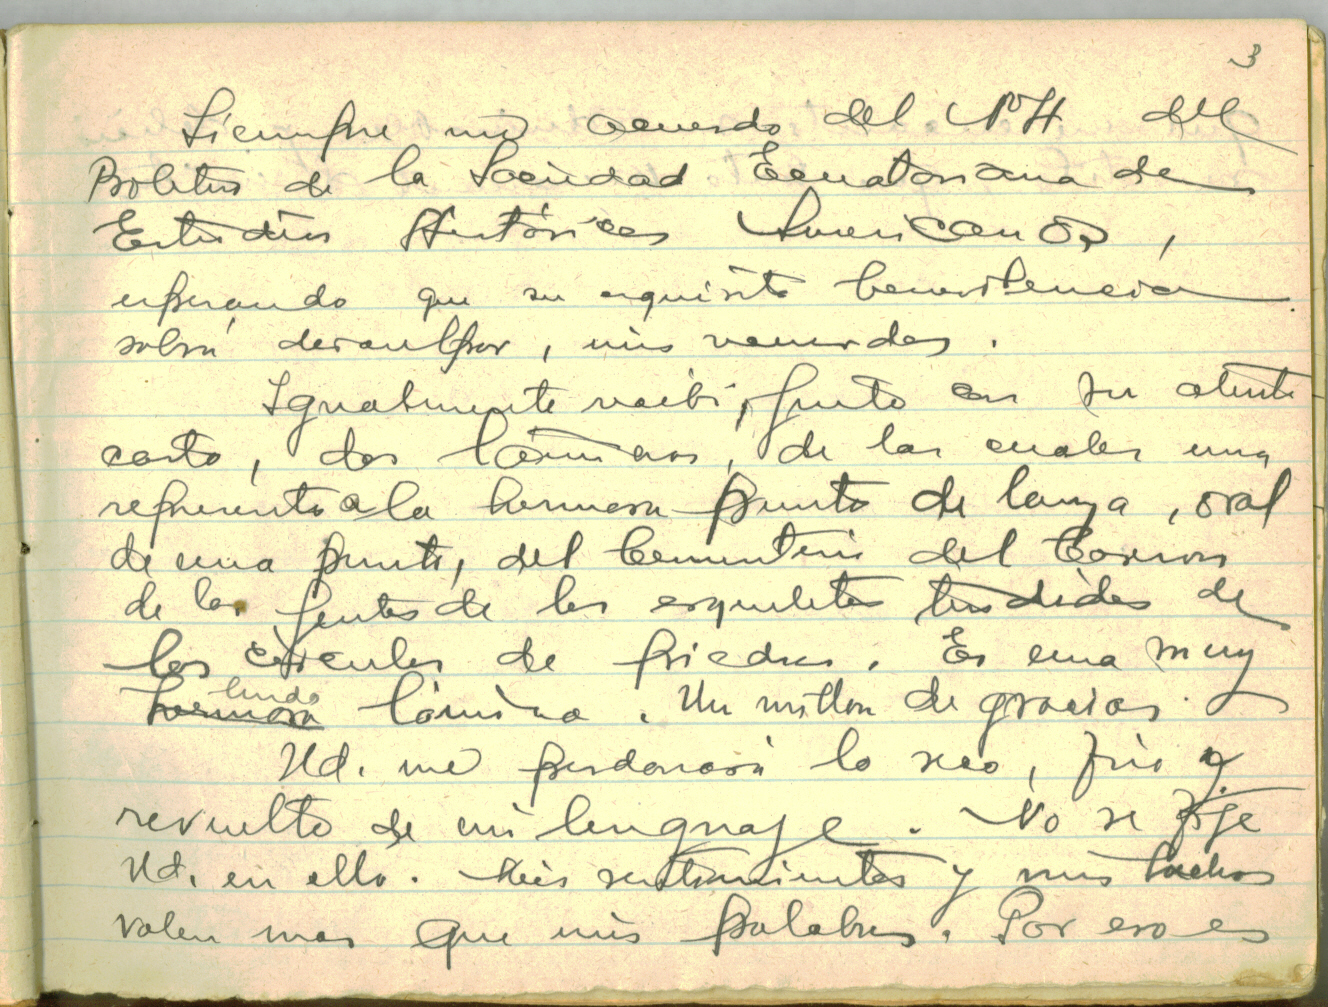 3
Siempre me acuerdo del Nº 4 del
Boletin de la Sociedad Ecuatoriana de
Estudios Históricos Americanos,
esperando que su exquisita benevolencia
sabrá disculpar, mis recuerdos.
Igualmente recibí, junto con su atenta
carta, dos láminas, de las cuales una
representa a la hermosa punta de lanza, oval
de una punta, del Cementerio del
de las gentes de los esqueletos tendidos de
los círculos de piedras. Es una muy
hermosa linda lámina. Un millon de gracias.
Ud. me perdonará lo seco, frio y
revuelto de mi lenguaje. No se fije
Ud. en ello. Mis sentimientos y mis hechos
valen mas que mis palabras. Por eso es